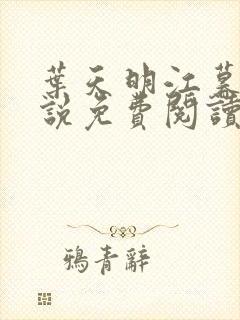 葉天明江慕
說免費閱讀
鴉青辭